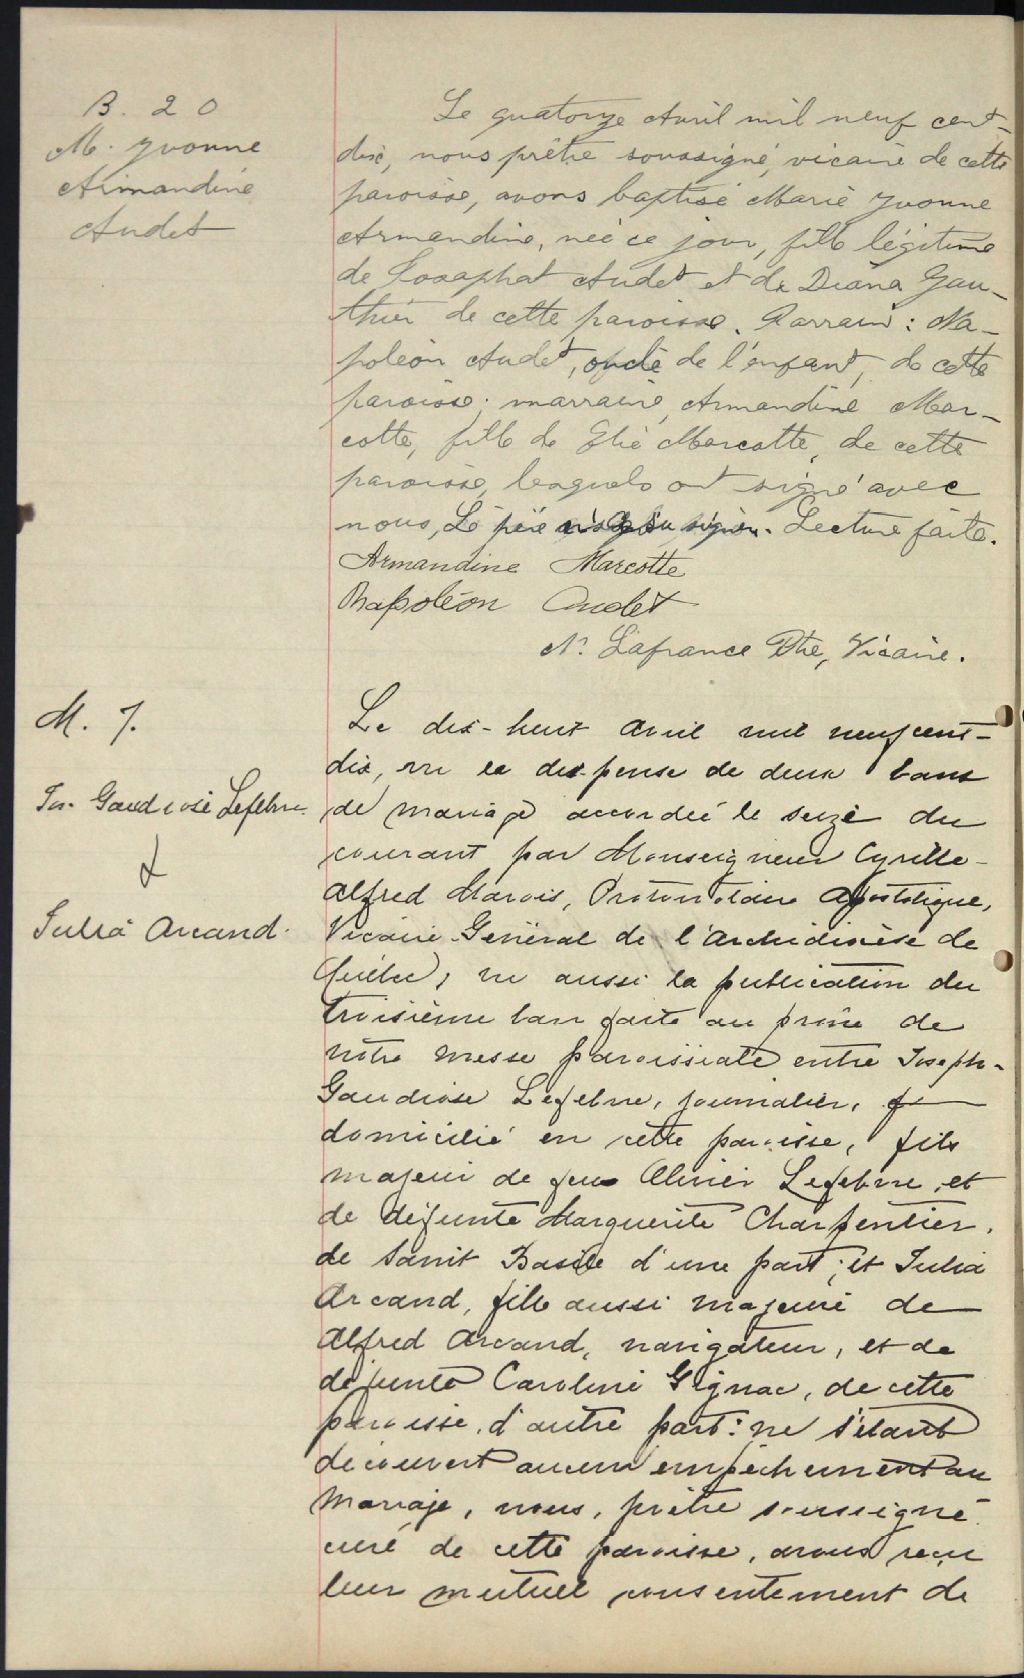 B. 20
M. Yvonne
Armandine
Audet
Le quatorze Avril mil neuf cent-
dix, nous prêtre soussigné, vicaire de cette
paroisse, avons baptisé Marie Yvonne
Armandine, née ce jour, fille légitime
de Josaphat Audet et de Diana Gau-
thier de cette paroisse. Parrain : Na-
poléon Audet, oncle de l'enfant, de cette
paroisse ; marraine, Armandine Mar-
cotte, fille de Elie Marcotte, de cette
paroisse, lesquels ont signé avec
nous, Le père n'a su signer. Lecture faite.
Armandine Marcotte
Napoléon Audet
N. Lafrance Ptre, Vicaire.
M. 7.
Jos. Gaudiose Lefebvre
&
Julia Arcand.
Le dix-huit avril mil neuf cent-
dix, vu la dispense de deux bans
de mariage accordée le seize du
courant par Monseigneur Cyrille-
Alfred Marois, Protonotaire Apostolique,
Vicaire Général de l'Archidiocèse de
Québec, vu aussi la publication du
troisième ban faite au prône de
notre messe paroissiale entre Joseph-
Gaudiose Lefebvre, journalier,
domicilié en cette paroisse, fils
majeur de feu Olivier Lefebvre, et
de défunte Marguerite Charpentier,
de Saint Basile d'une part ; et Julia
Arcand, fille aussi majeure de
Alfred Arcand, navigateur, et de
défunte Caroline Gignac, de cette
paroisse, d'autre part : ne s'étant
découvert aucun empêchement au
mariage, nous, prêtre soussigné
curé de cette paroisse, avons reçu
leur mutuel consentement de